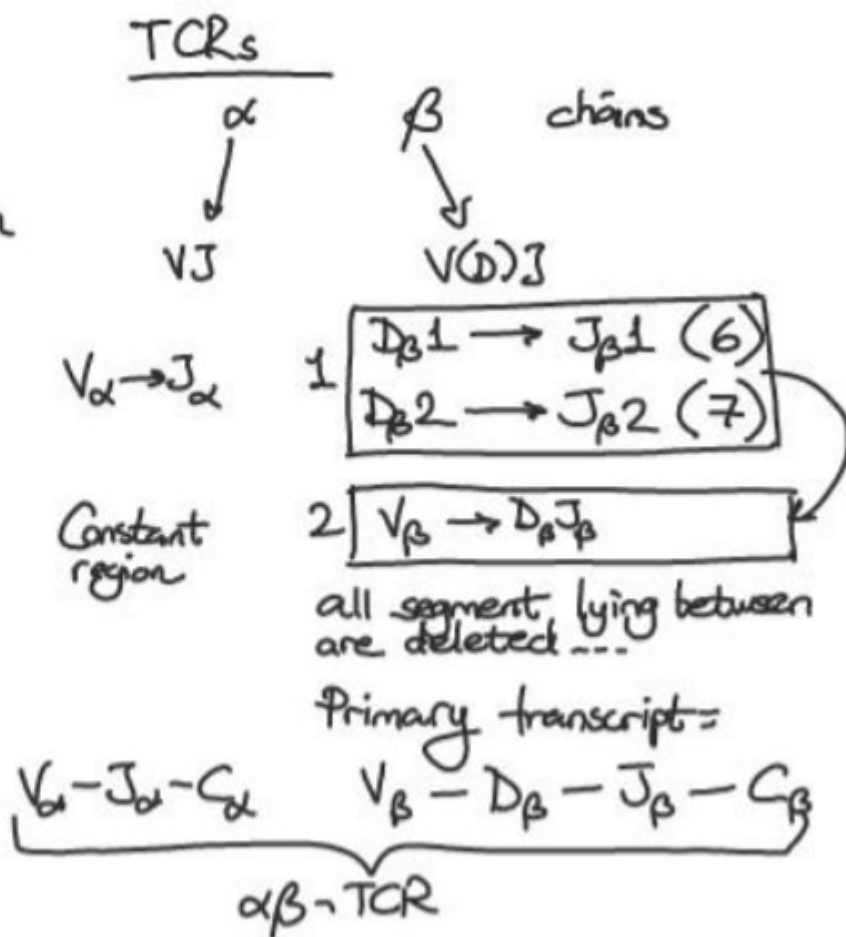 TCRs
α β chains
VJ V(D)J
Vα→Jα 1 Dβ1 → Jβ1 (6)
Dβ2 → Jβ2 (7)
Constant 2 Vβ → DβJβ
region
all segment lying between
are deleted ---
Primary transcript=
Vα-Jα-Cα Vβ - Dβ - Jβ - Cβ
αβ-TCR